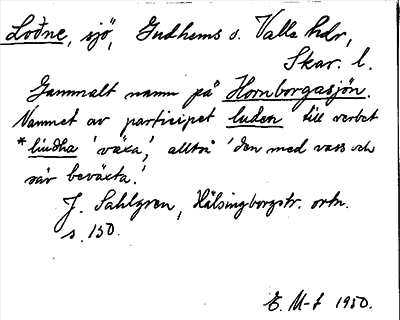 Loðne, sjö, Gudhems o. Valle hdr,
Skar. l.
Gammalt namn på Hornborgasjön.
Namnet av participet luden till verbet
*liudha 'växa', alltså 'den med vass och
sär beväxta.'
J. Sahlgren, Hälsingborgstr. ortn.
s. 150.
E. M-f 1950.